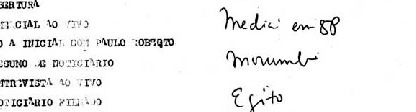 BERTURA
INICIAL AO VIVO
A INICIAL COM PAULO ROBERTO
RESUMO DE NOTICIÁRIO
ENTREVISTA AO VIVO
NOTICIÁRIO FILMADO
Medici em SP
Morumbi
Egito